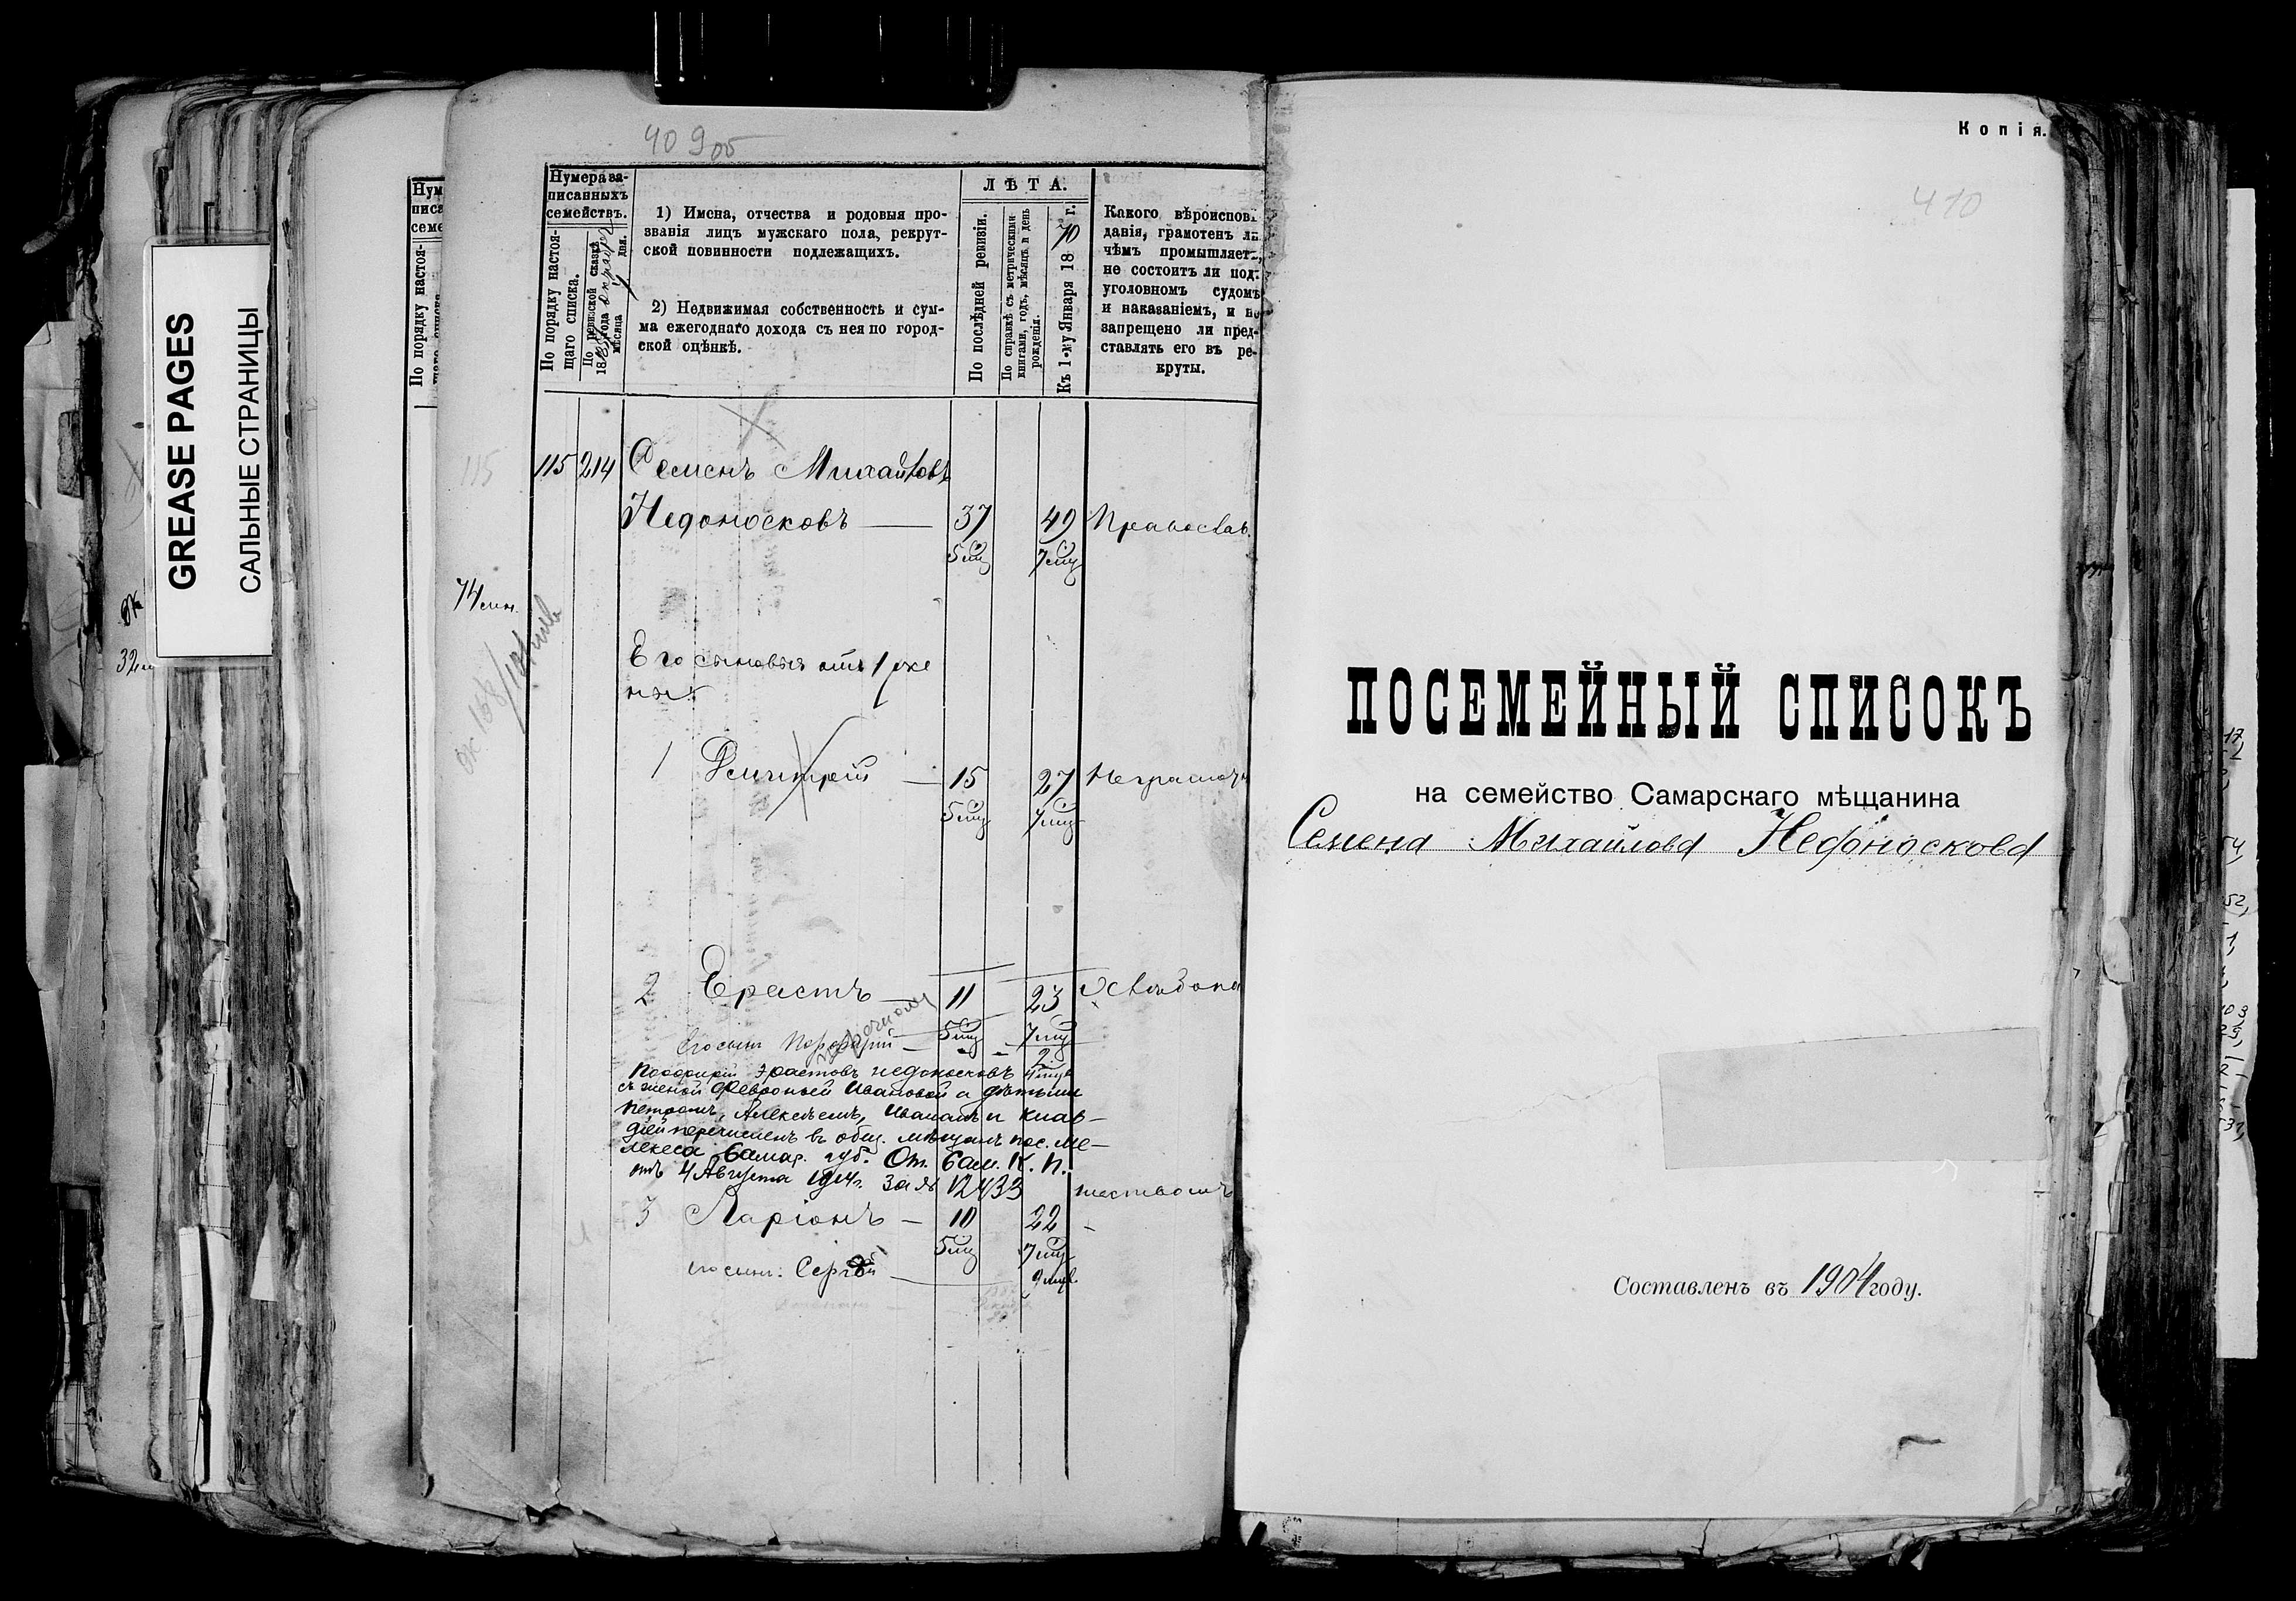 GREASE PAGES
САЛЬНЫЕ СТРАНИЦЫ
32
Нум
писа
семе
По порядку настоя-
409об
Нумера за-
писанныхъ
семействъ.
По порядку настоя-
щаго списка.
По ревизской сказкѣ
18 года
мѣсяца дня.
1) Имена, отчества и родовыя про-
званія лицъ мужскаго пола, рекрут-
ской повинности подлежащихъ.
2) Недвижимая собственность и сум-
ма ежегоднаго дохода съ нея по город-
ской оцѣнкѣ.
ЛѢТА.
По послѣдней ревизіи.
По справкѣ съ метрическими
книгами, годъ, мѣсяцъ и день
рожденія.
Къ 1-му Января 1870 г.
Какого вѣроиспов
данія, грамотенъ ли
чѣмъ промышляет
не состоитъ ли под
уголовномъ судомъ
и наказаніемъ, и не
запрещено ли пред-
ставлять его въ ре-
круты.
115 115 214 Семенъ Михайловъ
Недоносковъ — 37 49 Православ.
5 7
74
Его сыновья отъ 1 же
ны:
1 Дмитрей — 15 27 Неграмот
5 7
2 Ерастъ — 11 23
5 7
его сынъ Порфирій — 2
Порфирій Эрастовъ Недоносковъ
съ женой Февроньей Ивановой и дѣтьми
Петромъ, Алексѣемъ, Иваномъ и Клав-
діей перечисленъ въ общ. мѣщанъ пос. Ме-
лекеса Самар. губ. От. Сам. К. П.
отъ 4 Августа 1914г. за № 12433
шествомъ
3 Ларіонъ — 10 22 -
5 7
его сынъ: Сергѣй — 9
Копія.
410
ПОСЕМЕЙНЫЙ СПИСОКЪ
на семейство Самарскаго мѣщанина
Семена Михайлова Недоноскова
Составленъ въ 1904 году.